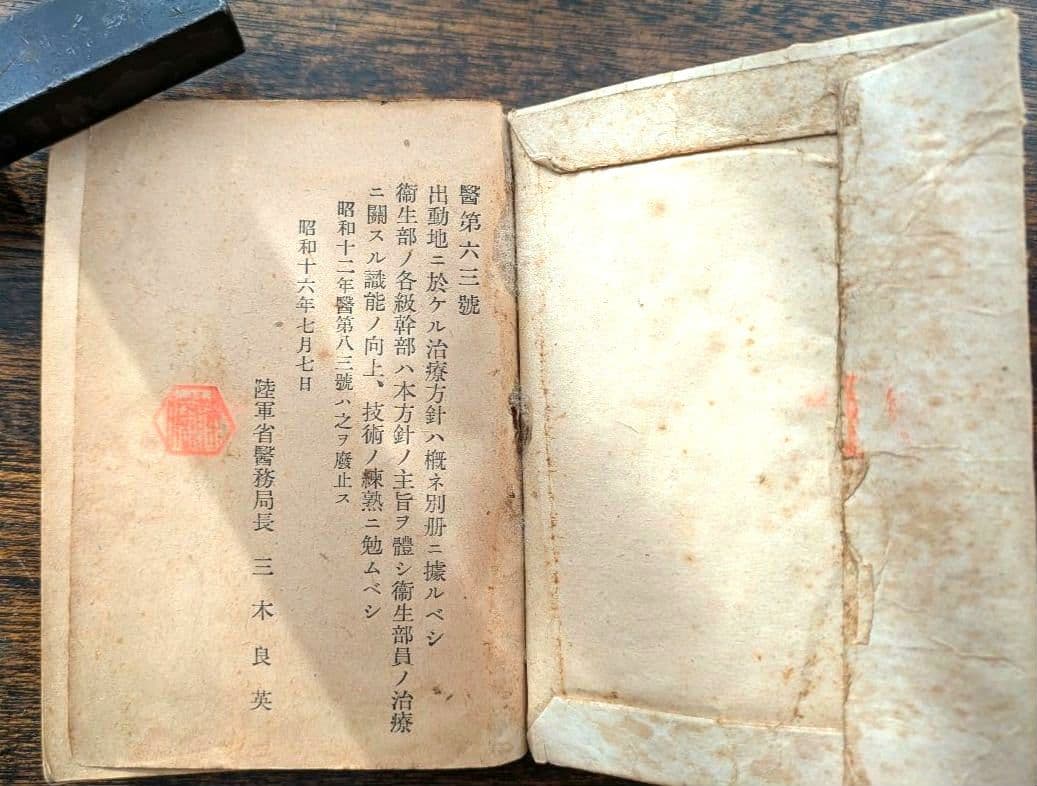 醫第六三號
出動地ニ於ケル治療方針ハ概ネ別册ニ據ルベシ
衞生部ノ各級幹部ハ本方針ノ主旨ヲ體シ衞生部員ノ治療
ニ關スル識能ノ向上、技術ノ練熟ニ勉ムベシ
昭和十二年醫第八三號ハ之ヲ廢止ス
昭和十六年七月七日
陸軍省醫務局長 三木良英